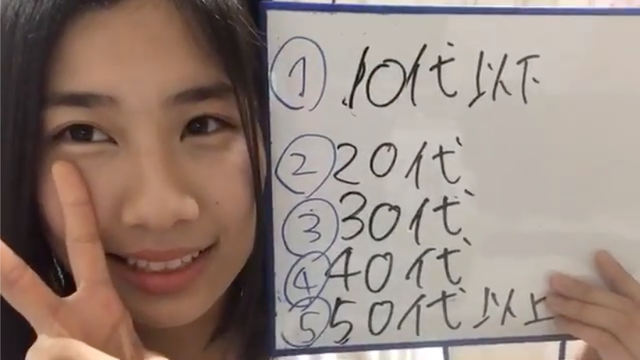 ① 10代以下
② 20代
③ 30代
④ 40代
⑤ 50代以上